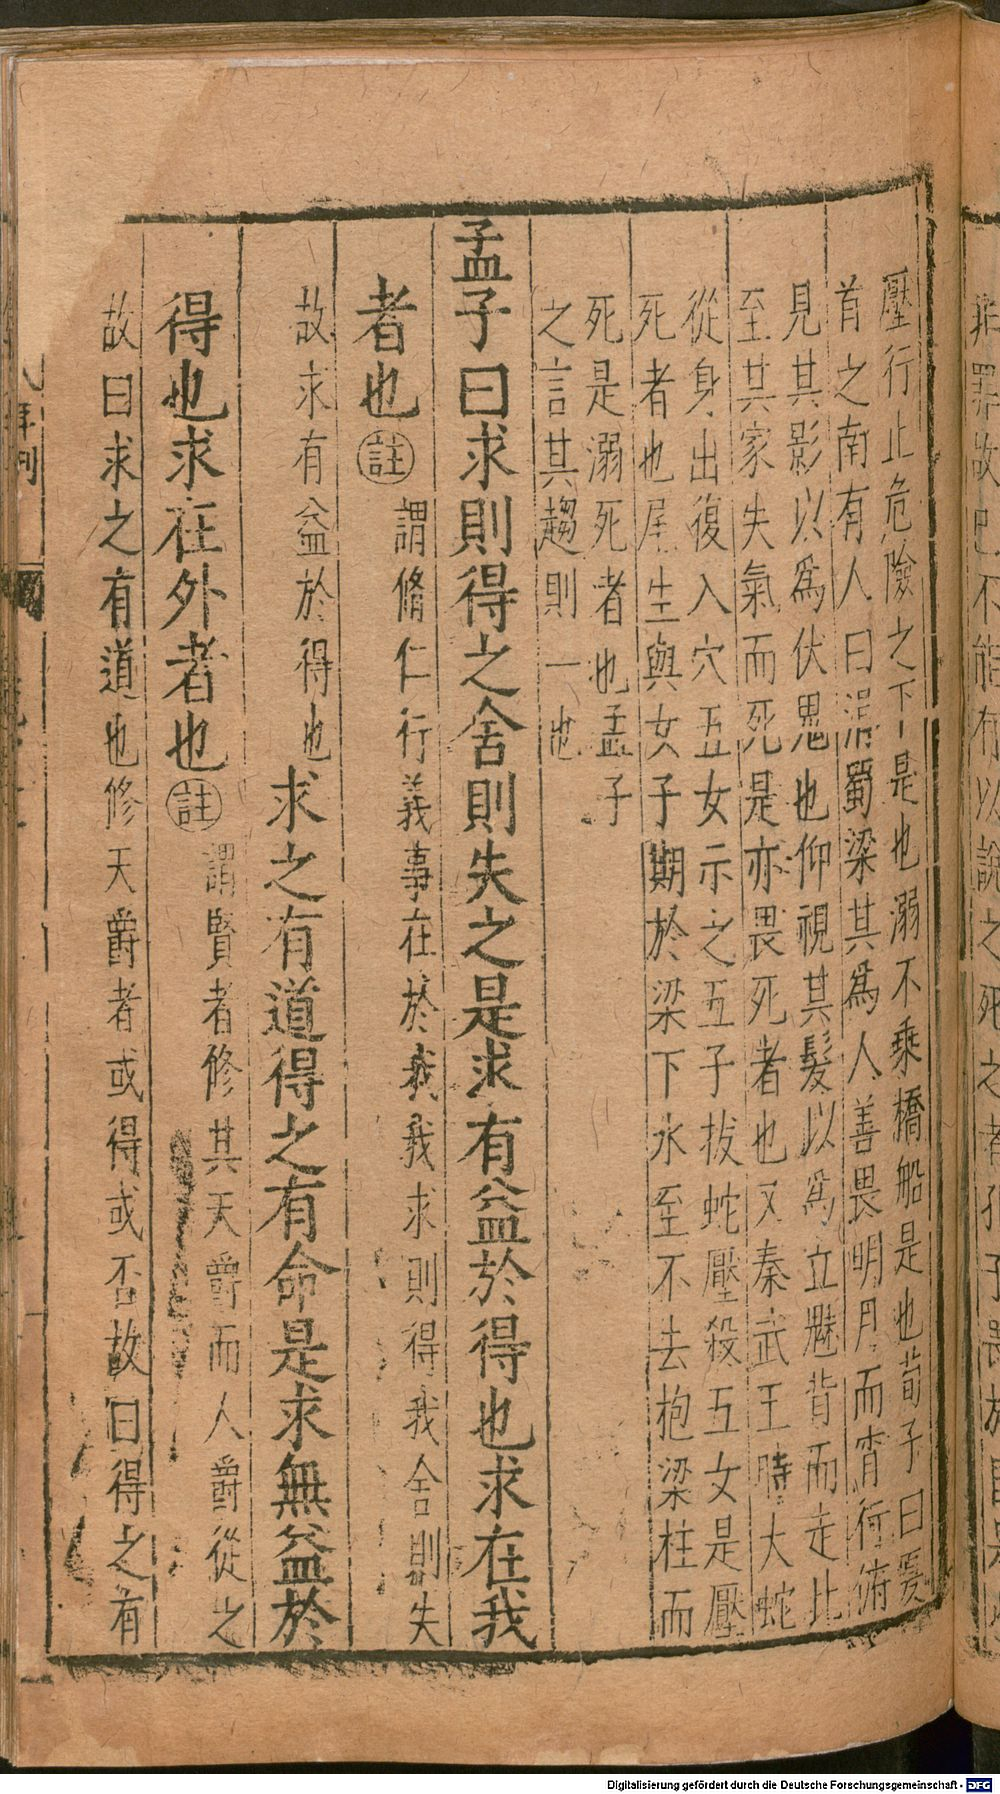 壓行止危險之下是也溺不乘橋船是也荀子曰夏
首之南有人曰涓蜀梁其爲人善畏明月而宵行俯
見其影以爲伏鬼也仰視其髮以爲立魅背而走比
至其家失氣而死是亦畏死者也又秦武王時大蛇
從身出復入穴五女示之五子拔蛇壓殺五女是壓
死者也尾生與女子期於梁下水至不去抱梁柱而
死是溺死者也孟子
之言其趨則一也
孟子曰求則得之舍則失之是求有益於得也求在我
者也註謂脩仁行義事在於我我求則得我舍則失
故求有益於得也求之有道得之有命是求無益於
得也求在外者也註謂賢者修其天爵而人爵從之
故曰求之有道也修天爵者或得或否故曰得之有
Digitalisierung gefördert durch die Deutsche Forschungsgemeinschaft - DFG